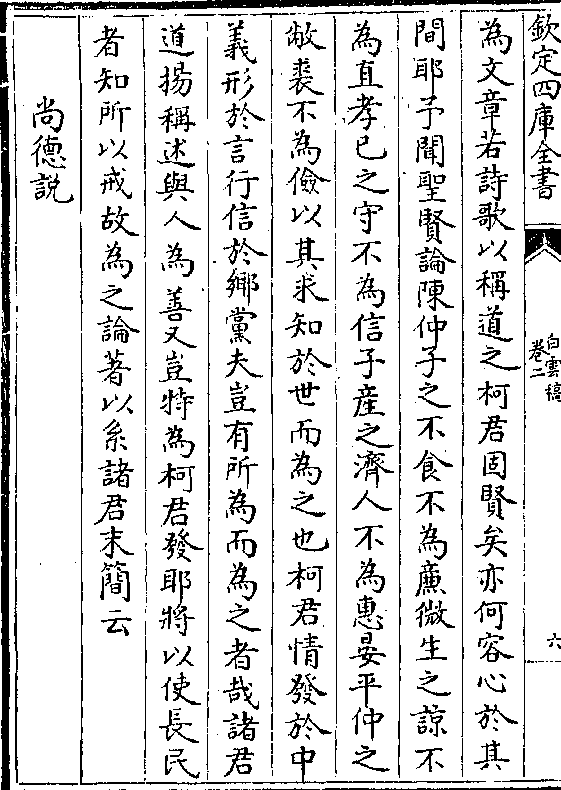 欽定四庫全書
白雲稿
卷二
六
為文章若詩歌以稱道之柯君固賢矣亦何容心於其
間耶予聞聖賢論陳仲子之不食不為廉微生之諒不
為直孝已之守不為信子産之濟人不為惠晏平仲之
敝裘不為儉以其求知於世而為之也柯君情發於中
義形於言行信於鄉黨夫豈有所為而為之者哉諸君
道揚稱述與人為善又豈特為柯君發耶將以使長民
者知所以戒故為之論著以系諸君末簡云
尚德說